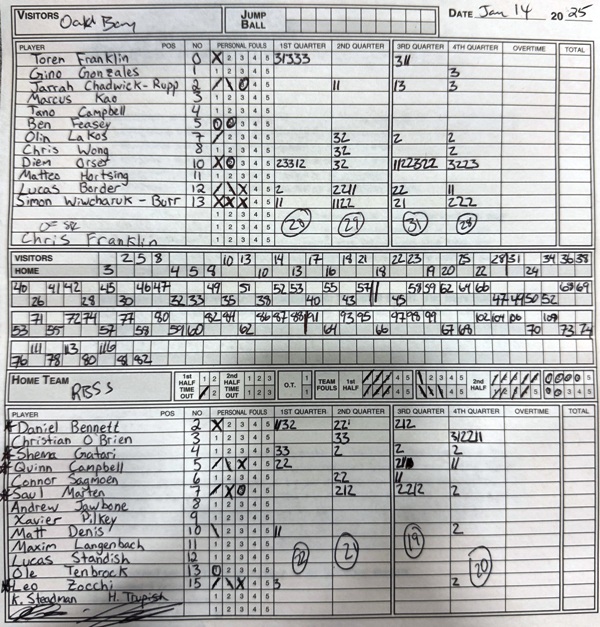 VISITORS Oak Bay JUMP BALL DATE Jan 14 2025
PLAYER POS NO PERSONAL FOULS 1ST QUARTER 2ND QUARTER 3RD QUARTER 4TH QUARTER OVERTIME TOTAL
Toren Franklin 0 X 2 3 4 5 31333 311
Gino Gonzales 1 1 2 3 4 5 3
Jarrah Chadwick-Rupp 2 11 13 3
Marcus Kao 3 1 2 3 4 5
Tano Campbell 4 1 2 3 4 5
Ben Feasey 5 3 4 5
Olin Lakos 7 2 3 4 5 32 2 2
Chris Wong 8 1 2 3 4 5 32 2
Diem Orser 10 3 4 5 23312 32 1122322 3223
Matteo Hortsing 11 1 2 3 4 5
Lucas Border 12 4 5 2 2211 22 11
Simon Wiwcharuk-Burr 13 XXX 4 5 11 1122 21 222
1 2 3 4 5 28 29 31 28
Chris Franklin 1 2 3 4 5
VISITORS 2 5 8 10 13 14 17 18 21 22 23 25 28 31 34 36 38
HOME 3 4 5 8 10 13 16 18 19 20 22 24
40 41 42 45 46 47 49 51 52 53 55 57 58 59 62 64 66 68 69
26 28 30 32 33 35 38 40 43 45 47 49 50 52
71 72 74 77 80 82 84 86 87 88 91 93 95 97 98 99 102 104 106 109
53 55 57 58 59 60 62 64 66 67 68 70 73 74
111 113 116
76 78 80 81 82
HOME TEAM RBSS 1st HALF TIME OUT 1 2 2nd HALF TIME OUT 1 2 3 O.T. TEAM FOULS 1st HALF 2nd HALF
PLAYER POS NO PERSONAL FOULS 1ST QUARTER 2ND QUARTER 3RD QUARTER 4TH QUARTER OVERTIME TOTAL
Daniel Bennett 2 X 2 3 4 5 1132 221 212
Christian O'Brien 3 1 2 3 4 5 33 312211
Shema Gatari 4 1 2 3 4 5 33 2 2 2
Quinn Campbell 5 4 5 22 11
Connor Sagmoen 6 1 2 3 4 5 22 11
Saul Marten 7 4 5 212 2212 2
Andrew Jawbone 8 1 2 3 4 5
Xavier Pilkey 9 1 2 3 4 5
Matt Denis 10 2 3 4 5 11 2
Maxim Langenbach 11 1 2 3 4 5 22 21 19
Lucas Standish 12 1 2 3 4 5 20
Ole Tenbrock 13 2 3 4 5
Leo Zocchi 15 4 5 3 2
K. Steadman 1 2 3 4 5
1 2 3 4 5